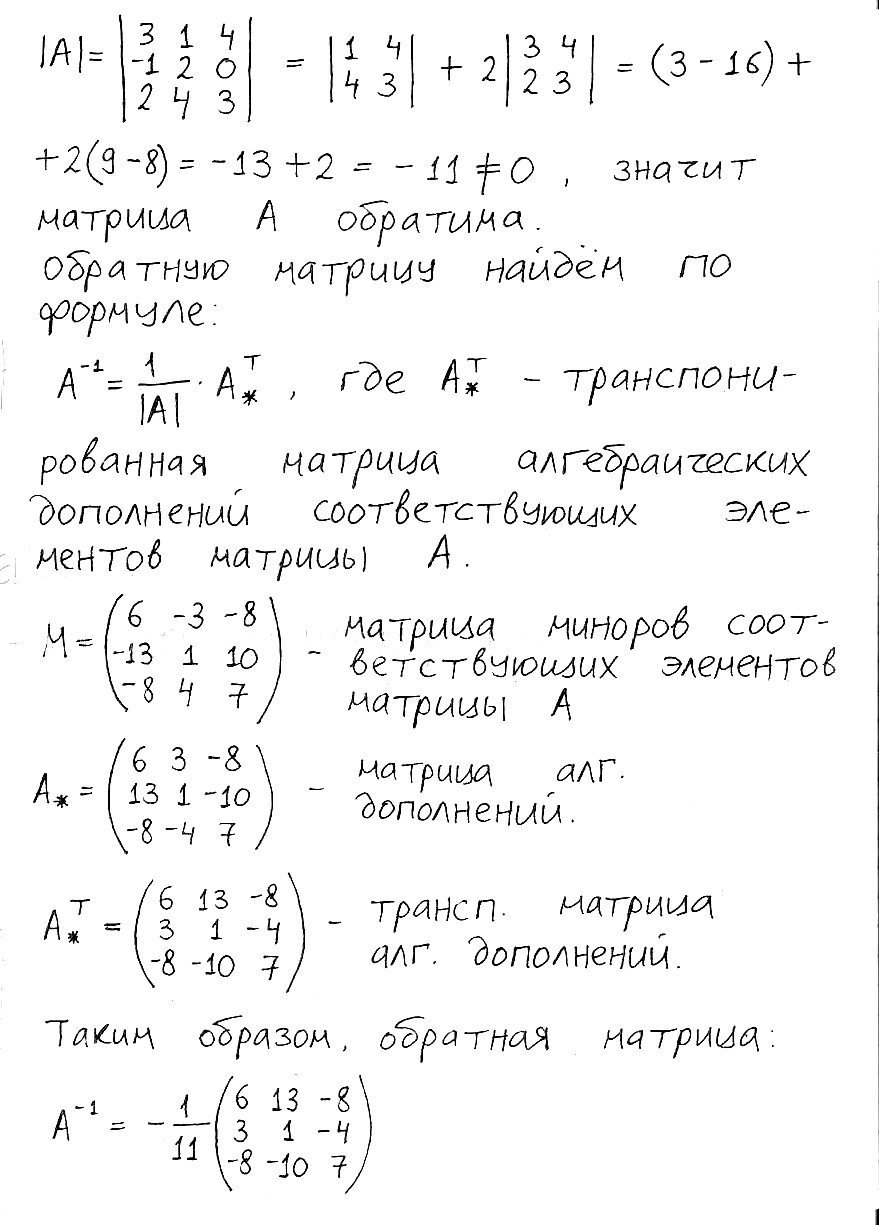 |A| = | 3 1 4 ; -1 2 0 ; 2 4 3 | = | 1 4 ; 4 3 | + 2 | 3 4 ; 2 3 | = (3 - 16) +
+ 2(9 - 8) = -13 + 2 = - 11 ≠ 0 , значит
матрица А обратима.
Обратную матрицу найдём по
формуле:
A⁻¹ = 1/|A| · A*ᵀ , где A*ᵀ - транспони-
рованная матрица алгебраических
дополнений соответствующих эле-
ментов матрицы А.
M = ( 6 -3 -8 ; -13 1 10 ; -8 4 7 ) - матрица миноров соот-
ветствующих элементов
матрицы А
A* = ( 6 3 -8 ; 13 1 -10 ; -8 -4 7 ) - матрица алг.
дополнений.
A*ᵀ = ( 6 13 -8 ; 3 1 -4 ; -8 -10 7 ) - трансп. матрица
алг. дополнений.
Таким образом, обратная матрица:
A⁻¹ = - 1/11 ( 6 13 -8 ; 3 1 -4 ; -8 -10 7 )